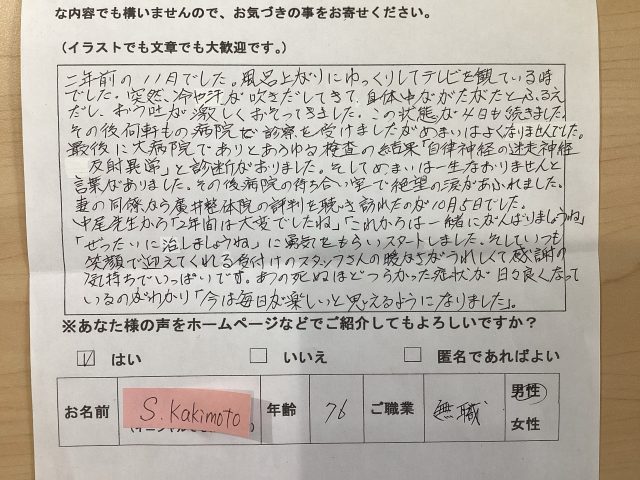 な内容でも構いませんので、お気づきの事をお寄せください。
(イラストでも文章でも大歓迎です。)
二年前の11月でした。風呂上がりにゆっくりしてテレビを観ている時
でした。突然、冷や汗が吹きだしてきて、身体中ががたがたとふるえ
だし、おう吐が激しくおそってきました。この状態が4日も続きました。
その後何軒もの病院で診察を受けましたがめまいはよくなりませんでした。
最後に大病院でありとあらゆる検査の結果「自律神経の迷走神経
反射異常」と診断がおりました。そしてめまいは一生なおりませんと
言葉がありました。その後病院の待ち合い室で絶望の涙があふれました。
妻の同僚なら廣井整体院の評判を聴き訪れたのが10月5日でした。
中尾先生から「2年間は大変でしたね」「これからは一緒にがんばりましょうね」
「ぜったいに治しましょうね」に勇気をもらいスタートしました。そしていつも
笑顔で迎えてくれる受付けのスタッフさんの暖かさがうれしくて感謝の
気持ちでいっぱいです。あの死ぬほどつらかった症状が日々良くなって
いるのがわかり「今は毎日が楽しいと思えるようになりました」。
※あなた様の声をホームページなどでご紹介してもよろしいですか?
はい いいえ 匿名であればよい
お名前 S.Kakimoto 年齢 76 ご職業 無職 男性
女性